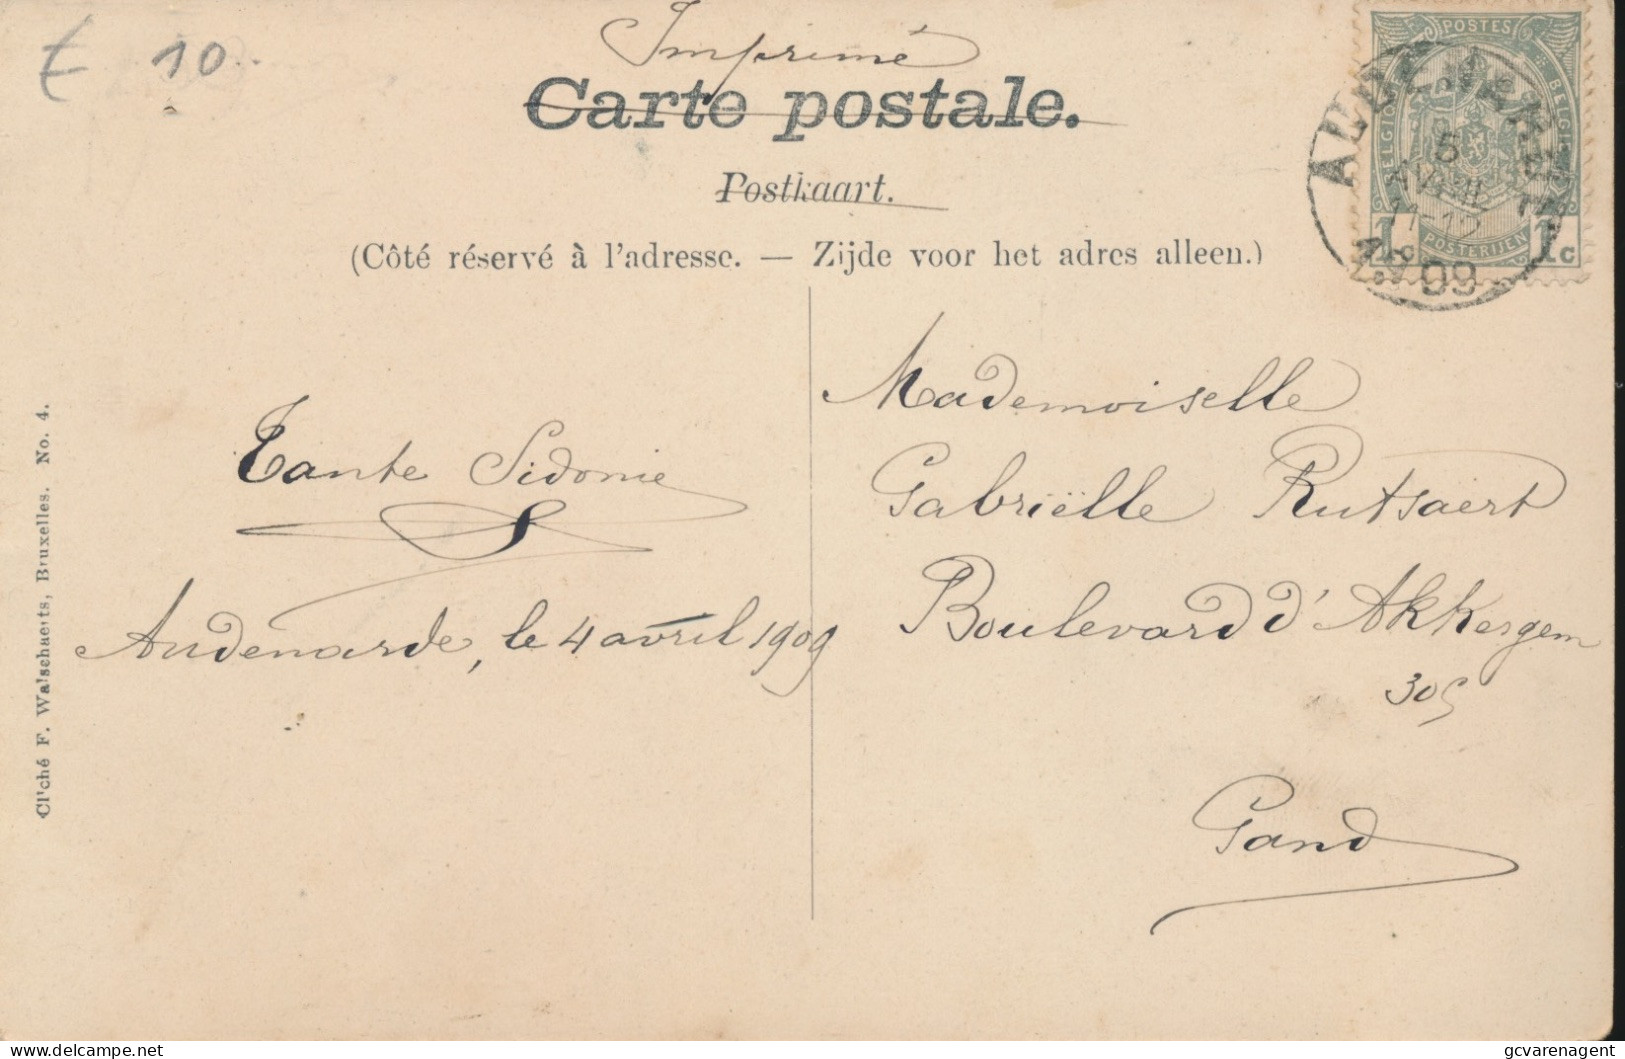 € 10
Imprimé
Carte postale.
Postkaart.
(Côté réservé à l'adresse. — Zijde voor het adres alleen.)
POSTES
BELGIQUE
BELGIË
POSTERIJEN
1c
1c
5
AVRIL
11-12
09
Mademoiselle
Gabriëlle Rutsaert
Boulevard d'Akkergem
305
Gand
Tante Sidonie
S
Audenarde, le 4 avril 1909
Cliché F. Walschaerts, Bruxelles. No. 4.
delcampe.net
gcvarenagent